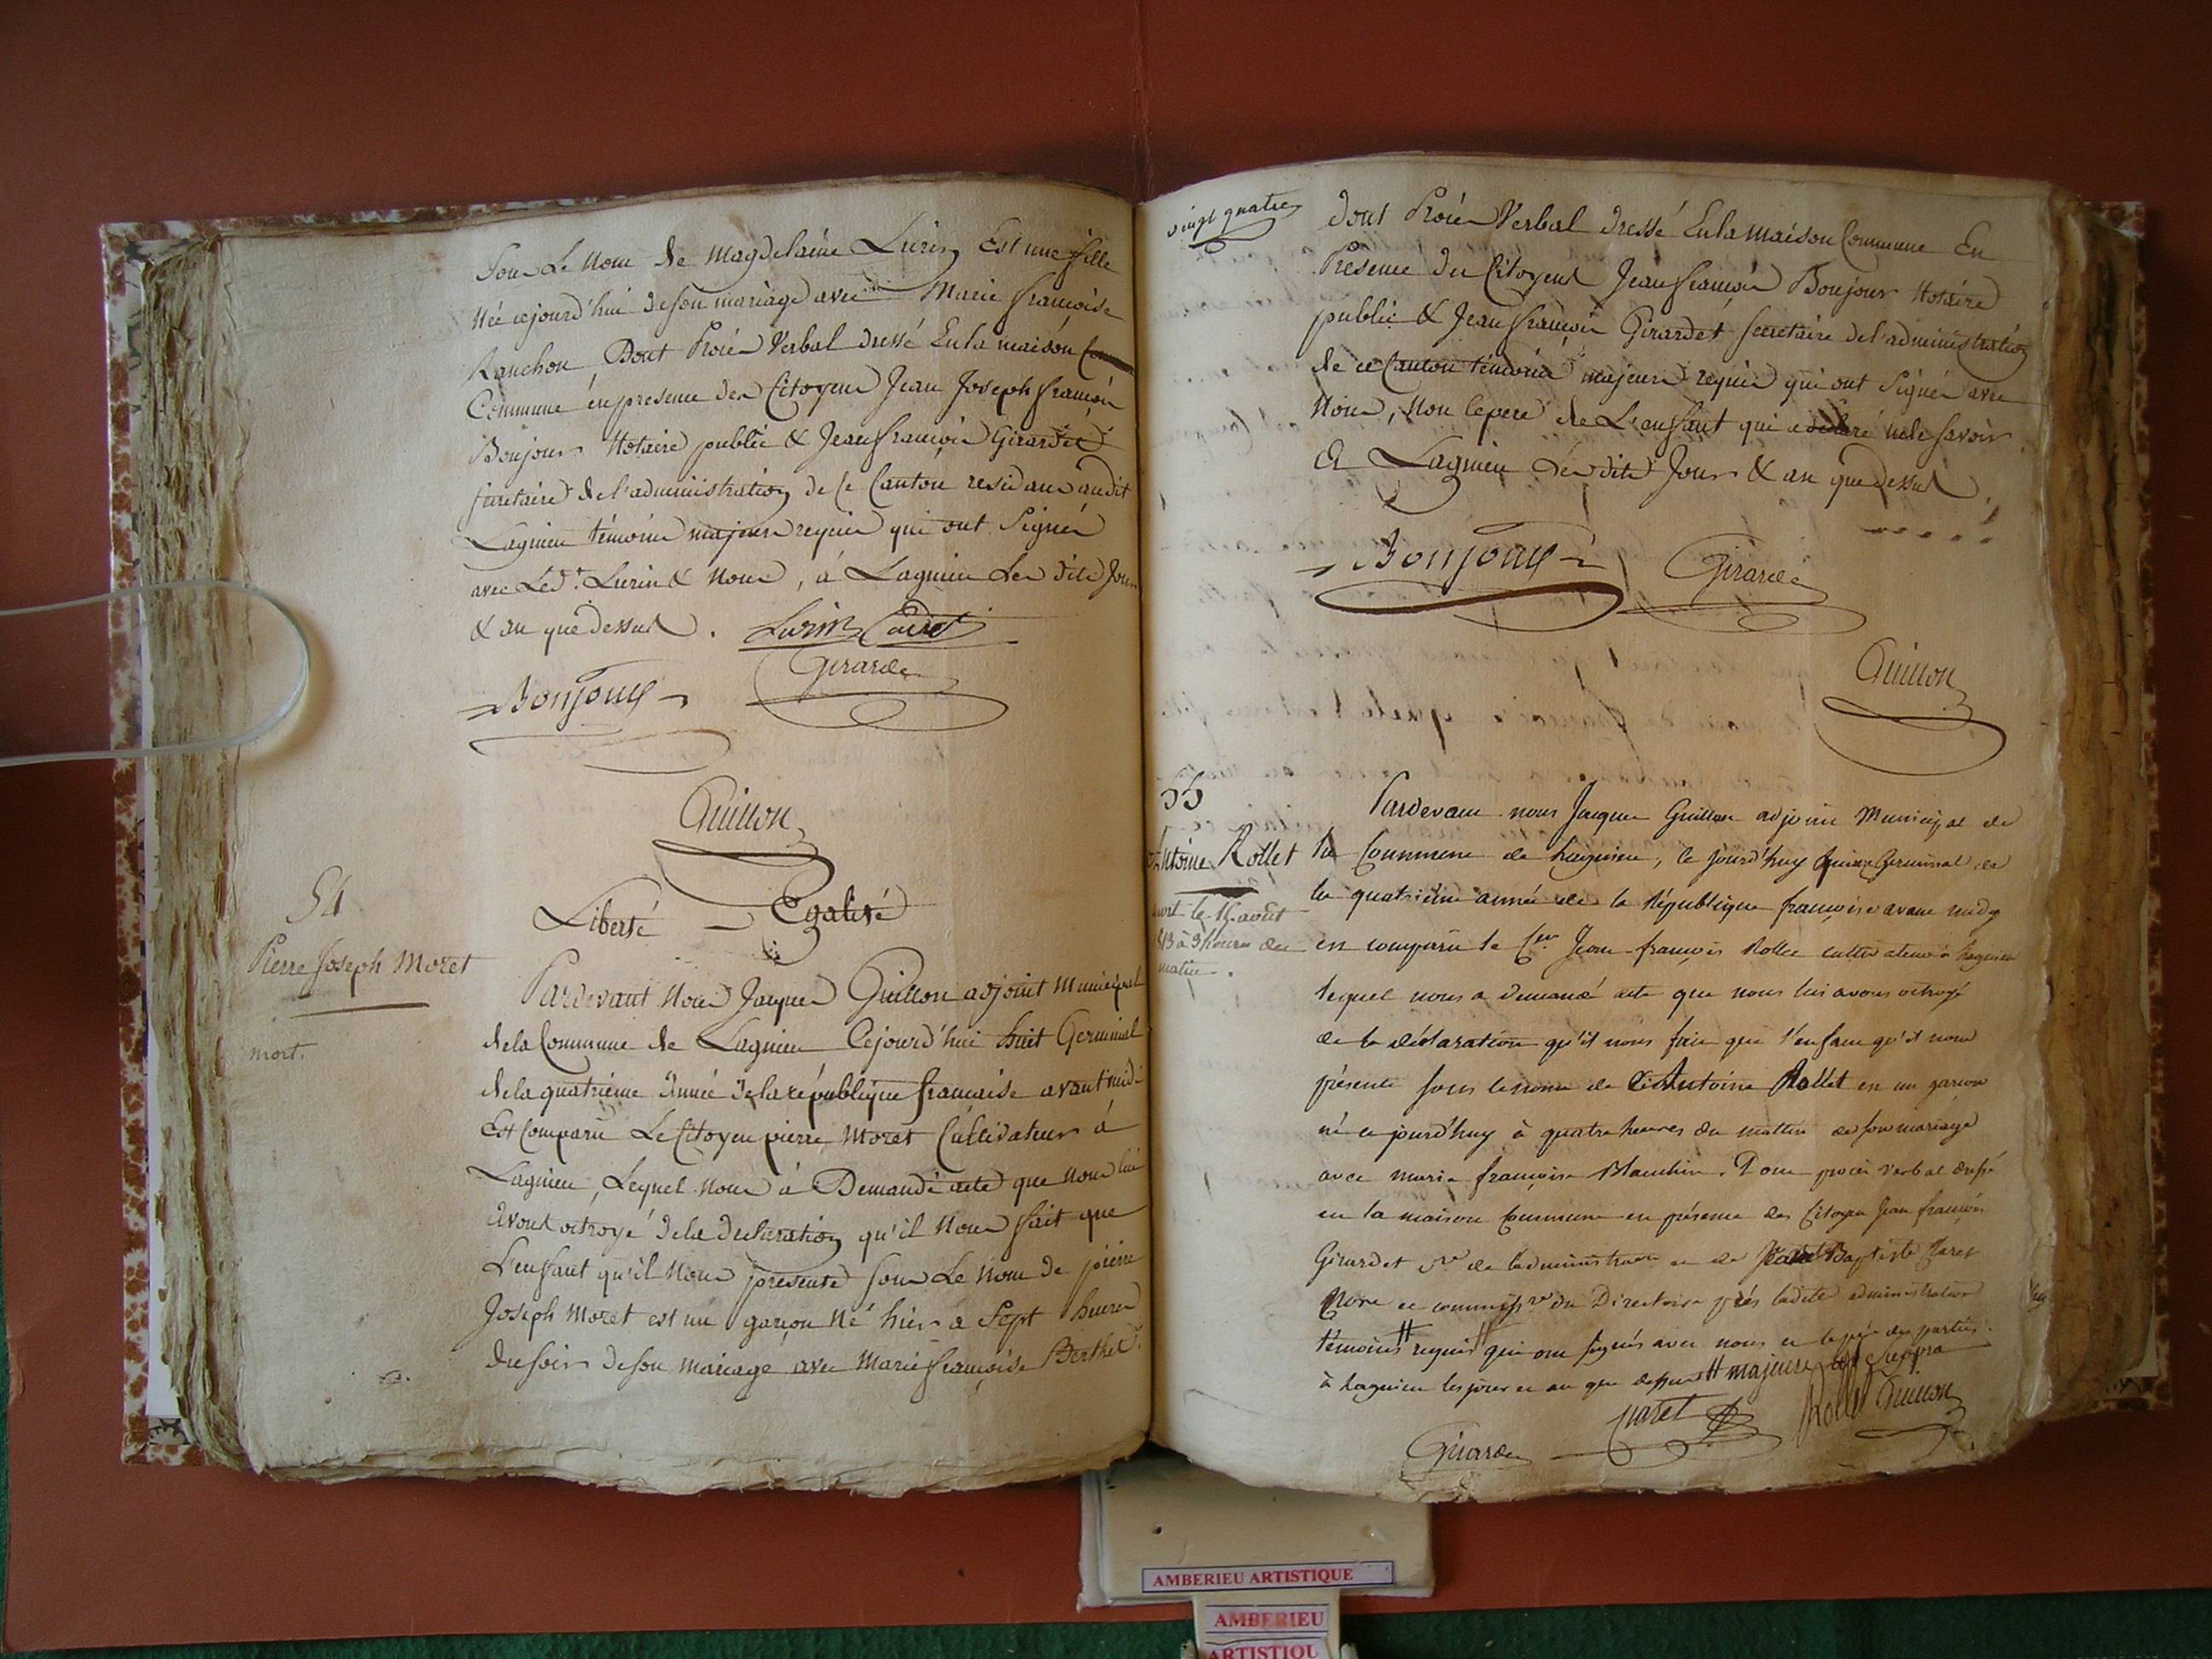 Sous Le Nom de Magdelaine Lurin Est une fille
Née cejourd'hui de son mariage avec Marie françoise
Ranchon Dont Procès Verbal dressé En la maison
Commune en presence des Citoyens Jean Joseph françois
Boujour Notaire public & Jean francois Girardet
secretaire de l'administration de Ce Canton residans audit
Lagnieu témoins majeurs requis qui ont Signés
avec Led.t Lurin & Nous, à Lagnieu Les dits Jour
& an que dessus. Lurin Cadet
Girardet
Bonjour
Guillon
54
Liberté - Egalité
Pierre Joseph Moret
mort.
Pardevant Nous Jacques Guillon adjoint Municipal
de la Commune de Lagnieu Cejourd'hui huit Germinal
de la quatrième année de la république francaise avant midi
Est Comparu Le Citoyen pierre Moret Cultivateur à
Lagnieu, Lequel Nous à Demandé acte que Nous lui
avons octroyé de la declaration qu'il Nous fait que
L'enfant qu'il Nous présente sous Le Nom de pierre
Joseph Moret est un garçon Né hier a Sept heures
du soir de son mariage avec Marie francoise Berthet
vingt quatre
dont Procès Verbal dressé En la maison Commune En
Presence des Citoyens Jean francois Boujour Notaire
public & Jean françois Girardet secretaire de l'administration
de ce Canton témoins majeurs requis qui ont Signés avec
Nous, Non le pere de L'enfant qui a declaré ne le savoir
A Lagnieu Les dits Jour & an que dessus
Bonjour
Girardet
Guillon
55
Antoine Rollet
mort le août
à 3 heures du
matin.
Pardevant nous Jacques Guillon adjoint Municipal de
la Commune de Lagnieu, ce jourd'huy Germinal de
la quatrième année de la République françoise avant midy
est comparu le C.en Jean françois Rollet cultivateur à Lagnieu
lequel nous a demandé acte que nous lui avons octroyé
de la déclaration qu'il nous fait que l'enfant qu'il nous
présente sous le nom de Antoine Rollet est un garcon
né ce jourd'huy à quatre heures du mattin de son mariage
avec marie françoise Blanchin. Dont procès verbal dressé
en la maison Commune en présence des Citoyen Jean françois
Girardet de l'administration et de Baptiste Paret
du Directoire près ladite administration
témoins # requis # qui ont signés avec nous et le père des parties.
à Lagnieu les jour et an que dessus # majeurs
Girardet
Paret
Rollet
Guillon
AMBERIEU ARTISTIQUE
AMBERIEU
ARTISTIQU